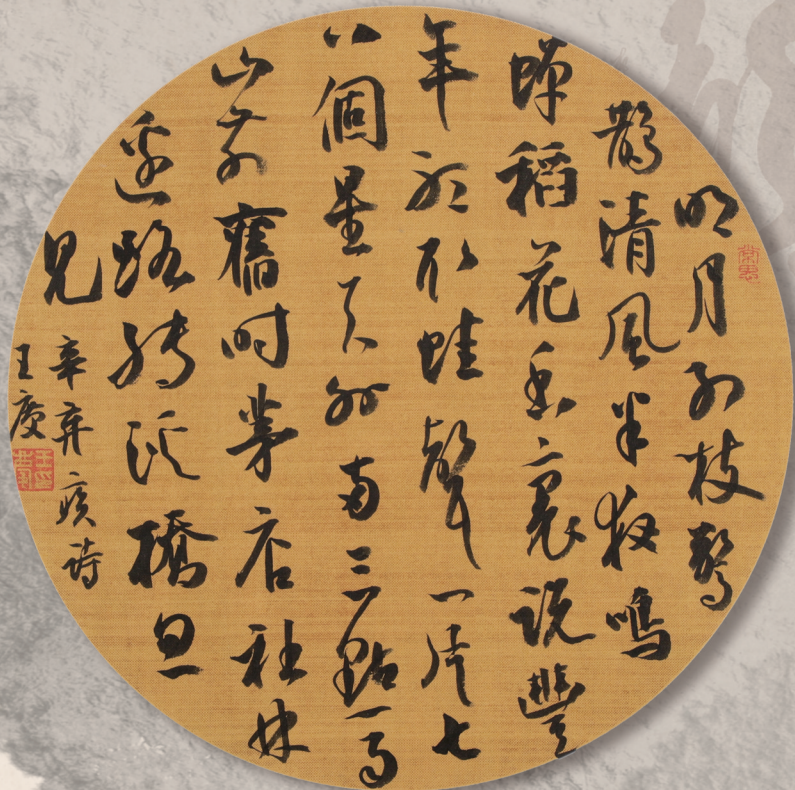 明月別枝驚
鵲清風半夜鳴
蟬稻花香裏說豐
年聽取蛙聲一片七
八個星天外兩三點雨
山前舊時茅店社林
邊路轉溪橋忽
見
辛弃疾诗
王